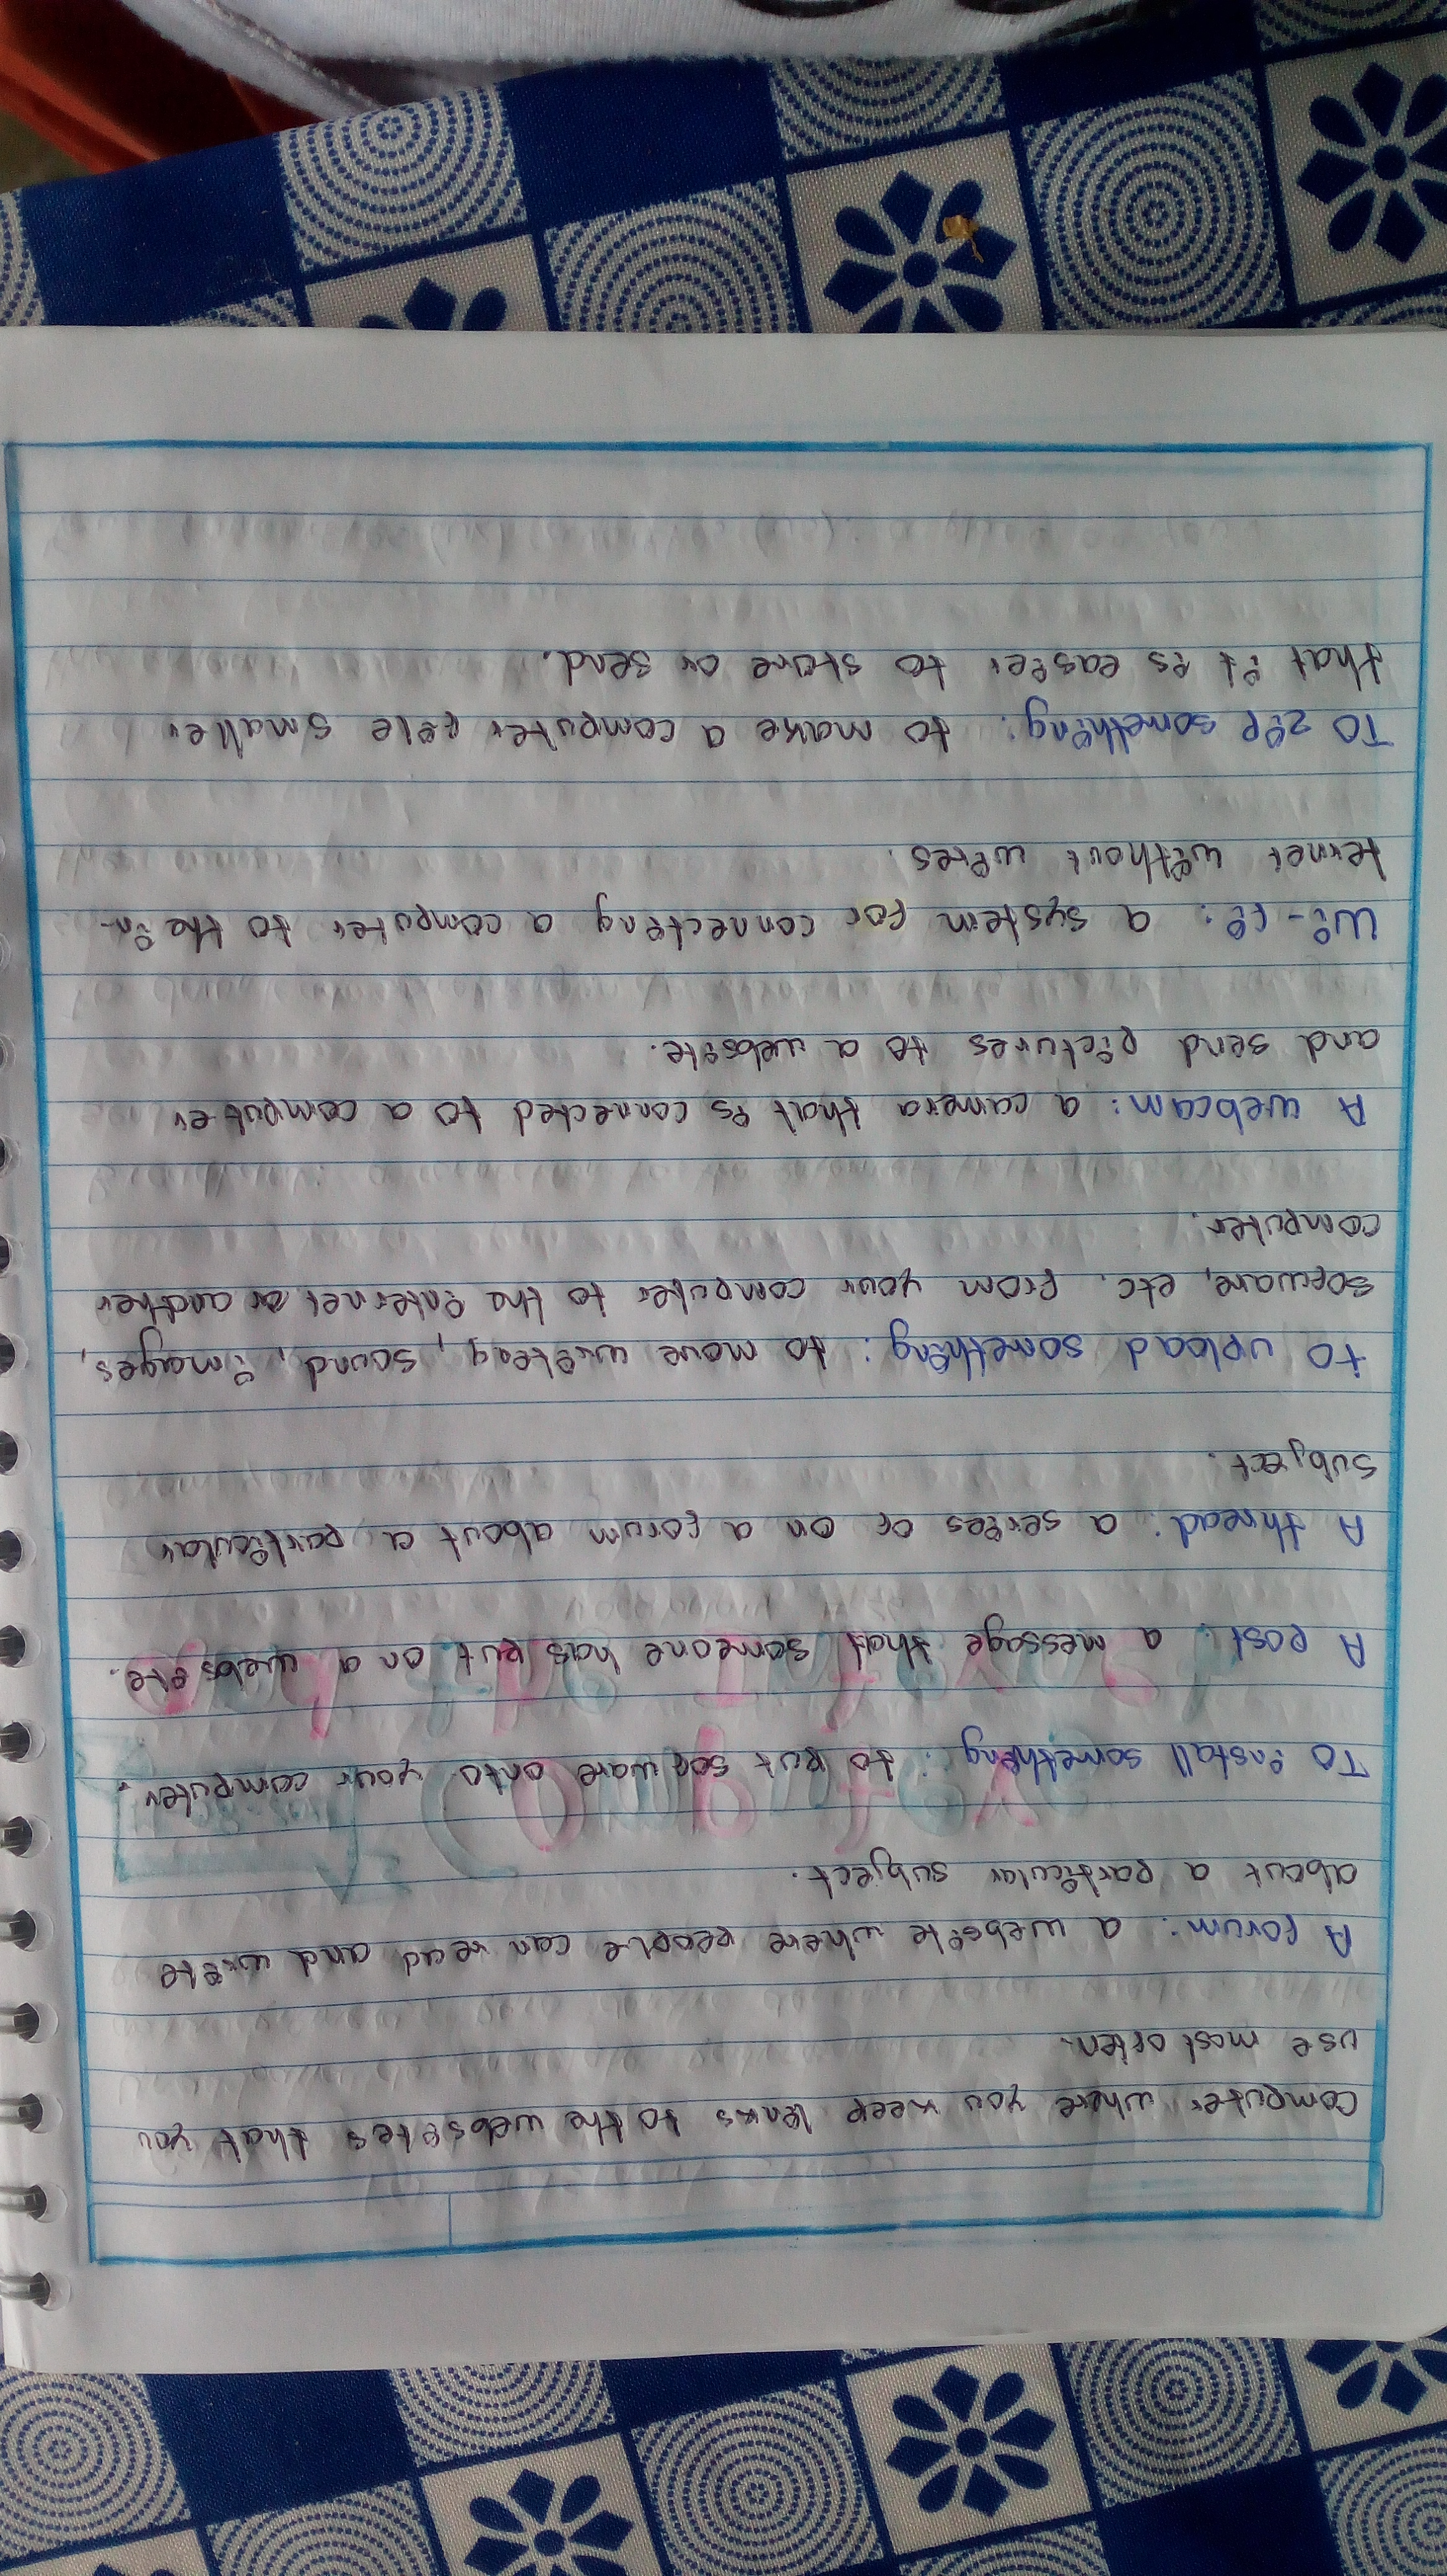 computer where you keep links to the websites that you
use most often.
A forum: a website where people can read and write
about a particular subject.
To install something: to put sofware onto your computer.
A post: a message that someone has put on a website.
A thread: a series of on a forum about a particular
subject.
to upload something: to move writing, sound, images,
sofware, etc. From your computer to the internet or another
computer.
A webcam: a camera that is connected to a computer
and send pictures to a website.
Wi-Fi: a system for connecting a computer to the in-
ternet without wires.
To zip something: to make a computer file smaller
that it is easier to store or send.